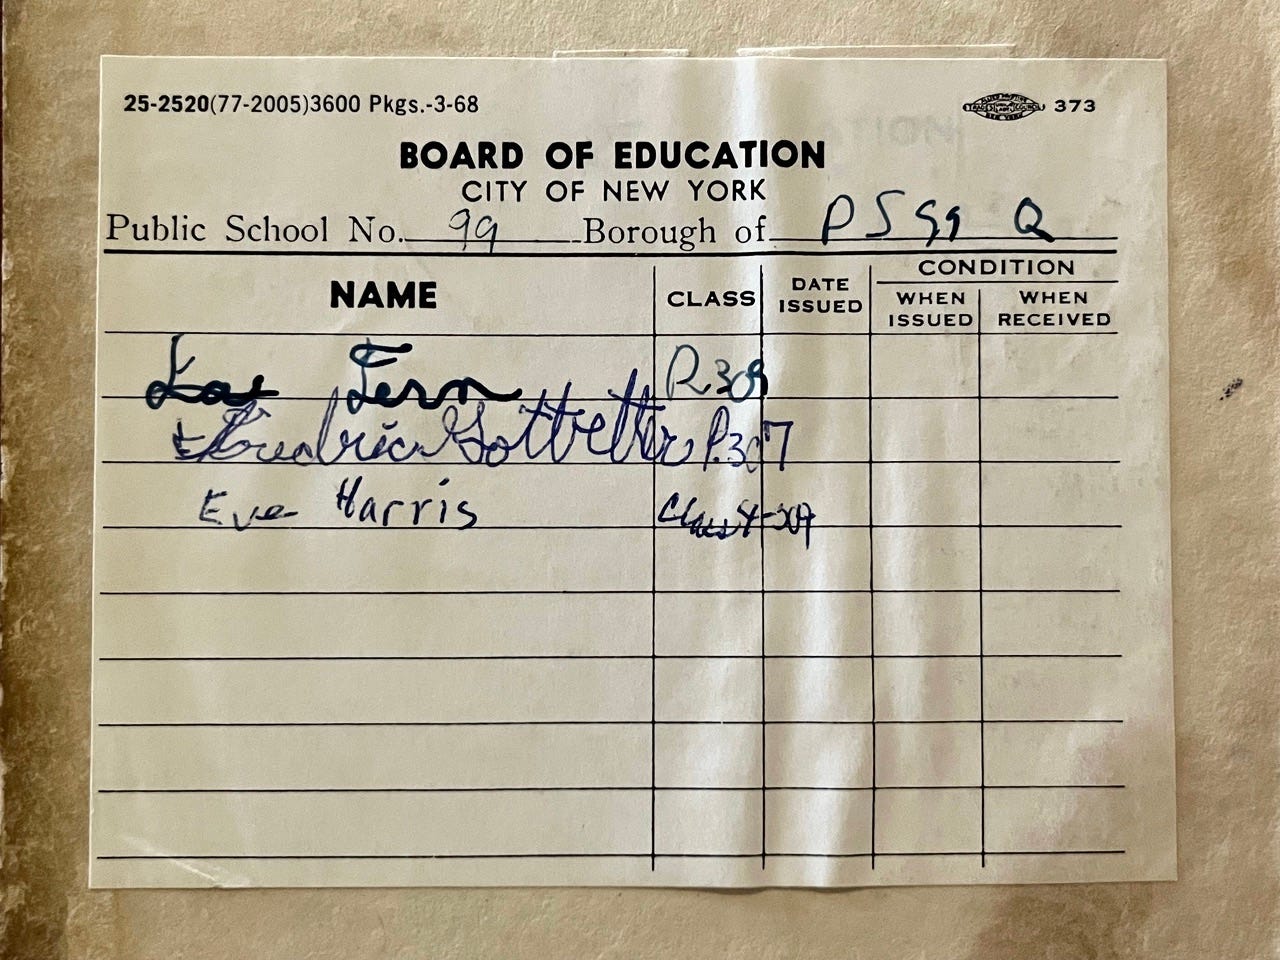 25-2520(77-2005)3600 Pkgs.-3-68 373
BOARD OF EDUCATION
CITY OF NEW YORK
Public School No. 99 Borough of PS 99 Q
NAME CLASS DATE ISSUED CONDITION
WHEN ISSUED WHEN RECEIVED
Fern R309
P.307
Eve Harris Class 4-309